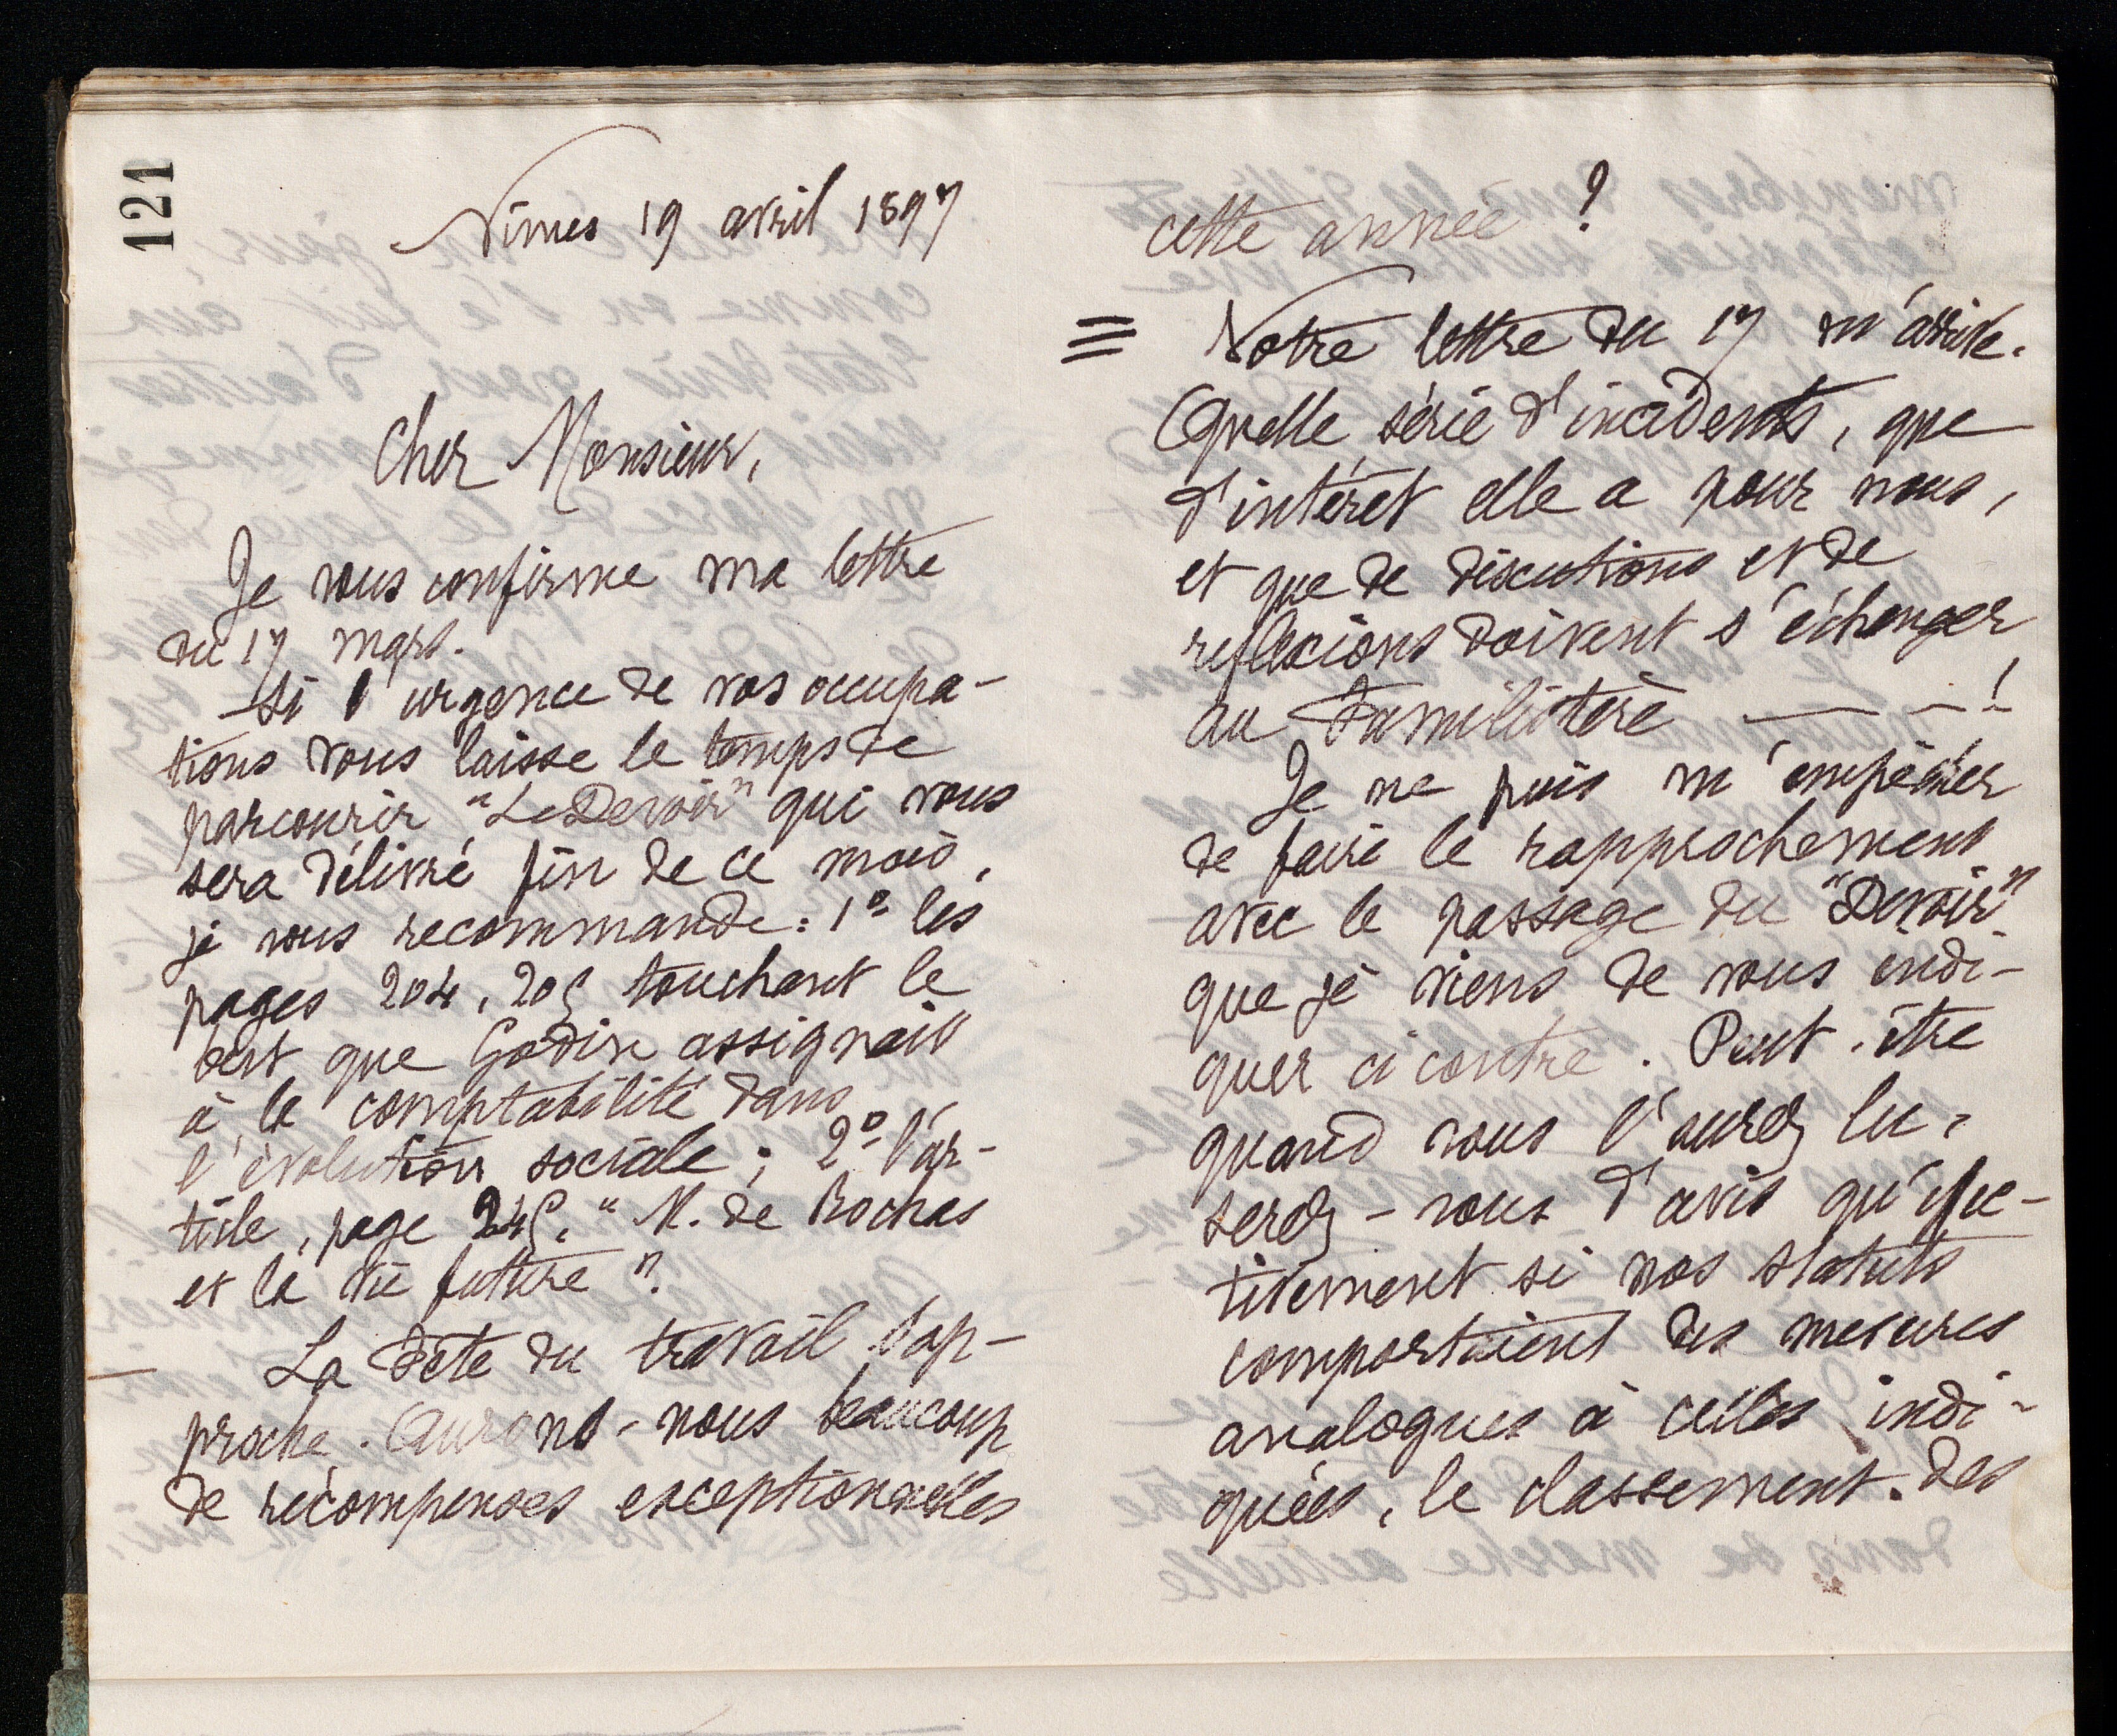 121
Nîmes 19 avril 1897
Cher Monsieur,
Je vous confirme ma lettre
du 17 mars.
Si l'urgence de vos occupa-
tions vous laisse le temps de
parcourir "Le Devoir" qui vous
sera délivré fin de ce mois,
je vous recommande : 1º les
pages 204, 205 touchant le
but que Godin assignait
à la comptabilité dans
l'évolution sociale ; 2º l'ar-
ticle, page 245, "M. de Rochas
et la vie future".
— La fête du travail s'ap-
proche. Aurons-nous beaucoup
de récompenses exceptionnelles
cette année ?
Votre lettre du 17 m'arrive.
Quelle série d'incidents, que
d'intérêt elle a pour nous,
et que de discutions et de
réflexions doivent s'échanger
au Familistère — — !
Je ne puis m'empêcher
de faire le rapprochement
avec le passage du "Devoir"
que je viens de vous indi-
quer ci contre. Peut-être
quand vous l'aurez lu,
serez-vous d'avis qu'effec-
tivement si nos statuts
comportaient des mesures
analogues à celles indi-
quées, le classement des